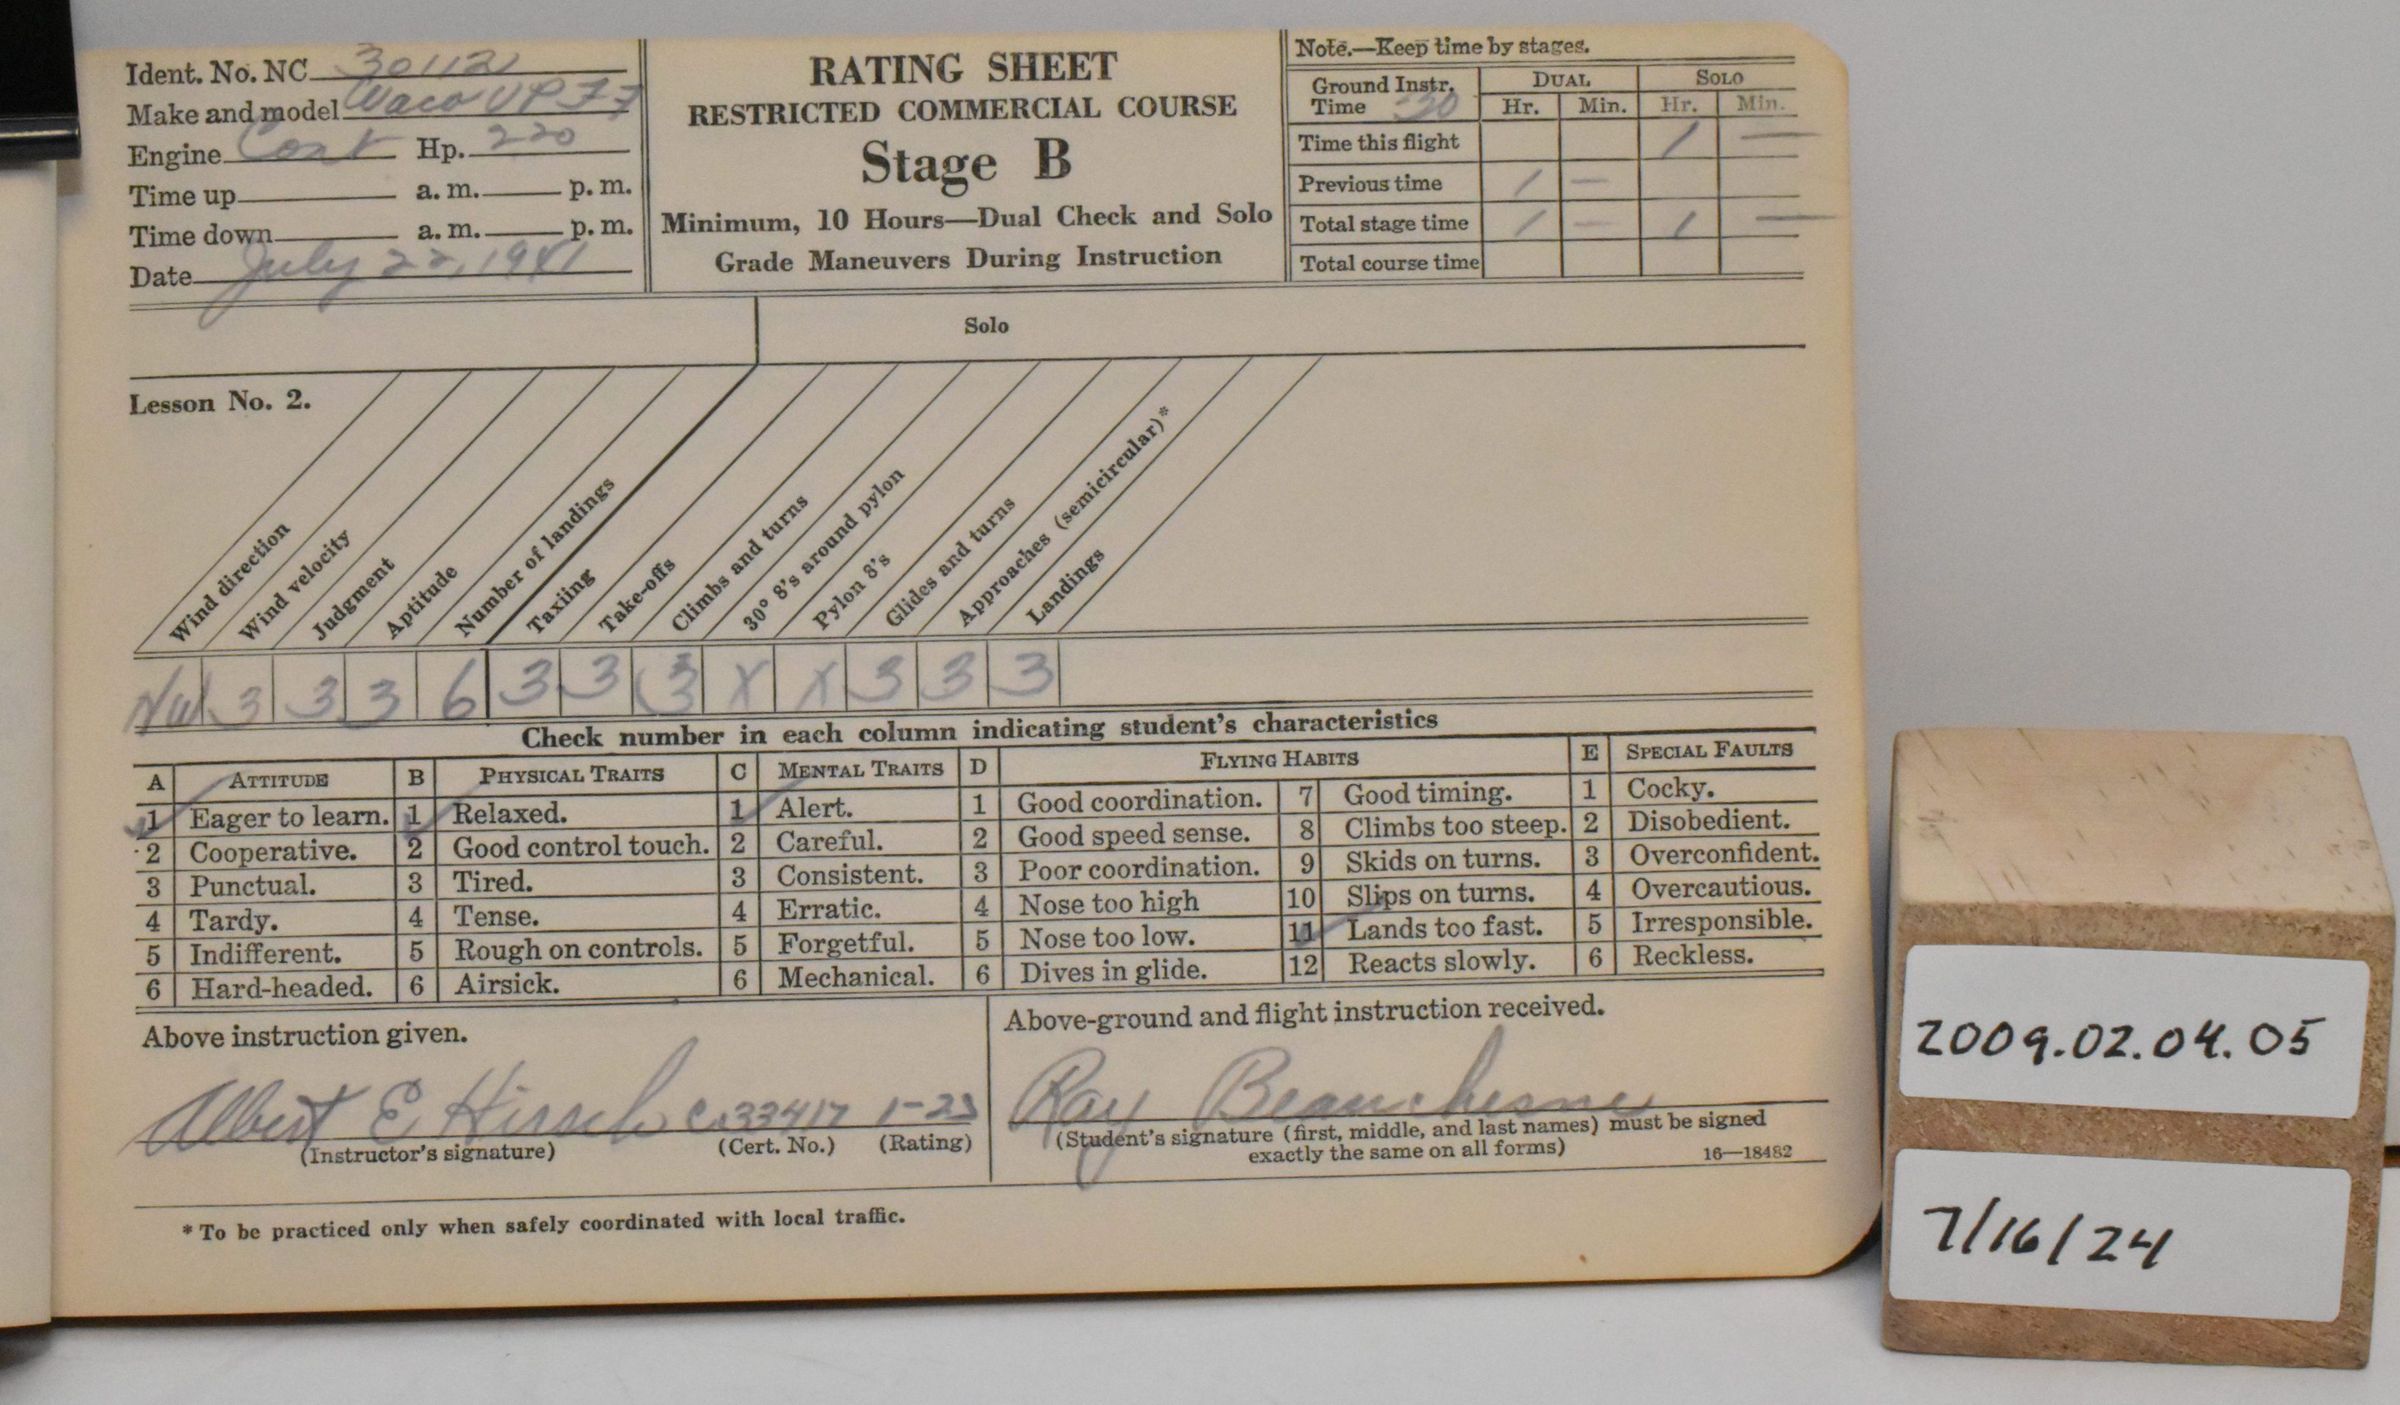 Ident. No. NC 30112
Make and model Waco UPF7
Engine Cont Hp. 220
Time up a. m. p. m.
Time down a. m. p. m.
Date July 22, 1941
RATING SHEET
RESTRICTED COMMERCIAL COURSE
Stage B
Minimum, 10 Hours—Dual Check and Solo
Grade Maneuvers During Instruction
Note.—Keep time by stages.
Ground Instr. Time 30 DUAL SOLO
Hr. Min. Hr. Min.
Time this flight 1 —
Previous time 1 —
Total stage time 1 — 1 —
Total course time
Solo
Lesson No. 2.
Wind direction
Wind velocity
Judgment
Aptitude
Number of landings
Taxiing
Take-offs
Climbs and turns
30° 8's around pylon
Pylon 8's
Glides and turns
Approaches (semicircular)*
Landings
NW 3 3 3 6 3 3 3 3 X X 3 3 3
Check number in each column indicating student's characteristics
A ATTITUDE B PHYSICAL TRAITS C MENTAL TRAITS D FLYING HABITS E SPECIAL FAULTS
1 Eager to learn. 1 Relaxed. 1 Alert. 1 Good coordination. 7 Good timing. 1 Cocky.
2 Cooperative. 2 Good control touch. 2 Careful. 2 Good speed sense. 8 Climbs too steep. 2 Disobedient.
3 Punctual. 3 Tired. 3 Consistent. 3 Poor coordination. 9 Skids on turns. 3 Overconfident.
4 Tardy. 4 Tense. 4 Erratic. 4 Nose too high 10 Slips on turns. 4 Overcautious.
5 Indifferent. 5 Rough on controls. 5 Forgetful. 5 Nose too low. 11 Lands too fast. 5 Irresponsible.
6 Hard-headed. 6 Airsick. 6 Mechanical. 6 Dives in glide. 12 Reacts slowly. 6 Reckless.
Above instruction given.
Albert E Hirsch C.33417 1-2S
(Instructor's signature) (Cert. No.) (Rating)
Above-ground and flight instruction received.
Ray Beauchesne
(Student's signature (first, middle, and last names) must be signed
exactly the same on all forms) 16—18482
* To be practiced only when safely coordinated with local traffic.
2009.02.04.05
7/16/24